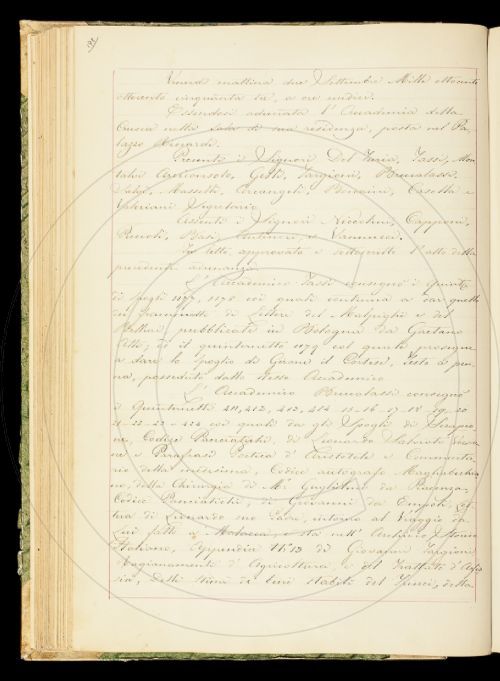 Venerdi mattina due Settembre Mille ottocento
ottocento cinquanta tre, a ore undici.
Essendosi adunata l'Accademia della
Crusca nella Sala di sua residenza, posta nel Pa
lazzo
Presenti i Signori Del Furia, Tassi, Mon
talvi Arciconsolo, Gelli, Targioni, Brucalassi
Salvi, Masselli, Arcangeli, Bencini, Casella e
Valeriani Segretario.
Assenti i Signori Niccolini, Capponi,
Puccioti, Basi, e Vannucci.
Fu letto, approvato e sottoscritto l'atto della
precedente adunanza.
L'Accademico Tassi consegnò i quinter
di fogli 1177, 1178 coi quali continua a dar quelli
di Lettere del Malpighi e del
pubblicate in Bologna da Gaetano
Atti; e il quinternetto 1179 col quale prosegue
a dare lo spoglio di Girone il Cortese, Testo a pen
na, posseduto dallo stesso Accademico.
L'Accademico Brucalassi consegnò
i Quinternetti 411, 412, 413, 414 15-16-17-18-19-20
21-22-23-424 coi quali dà gli Spogli di
Codice Panciatichi, di Leonardo Salviati
ne e Parafrasi Poetica d'Aristotele e Commenta
rio della medesima, Codice autografo Magliabechia
no, della Chirurgia di Mo Guglielmo da Piacenza
Codice Panciatichi, di Giovanni da Empoli, Let
tera di Lionardo suo Padre, intorno al Viaggio da
Lui fatto a Malacca, nell'Archivio Storico
Italiano, Appendice No 13 di Giovanni Targioni
Ragionamenti d'Agricoltura e del Trattato d'
della Stima di beni stabili del